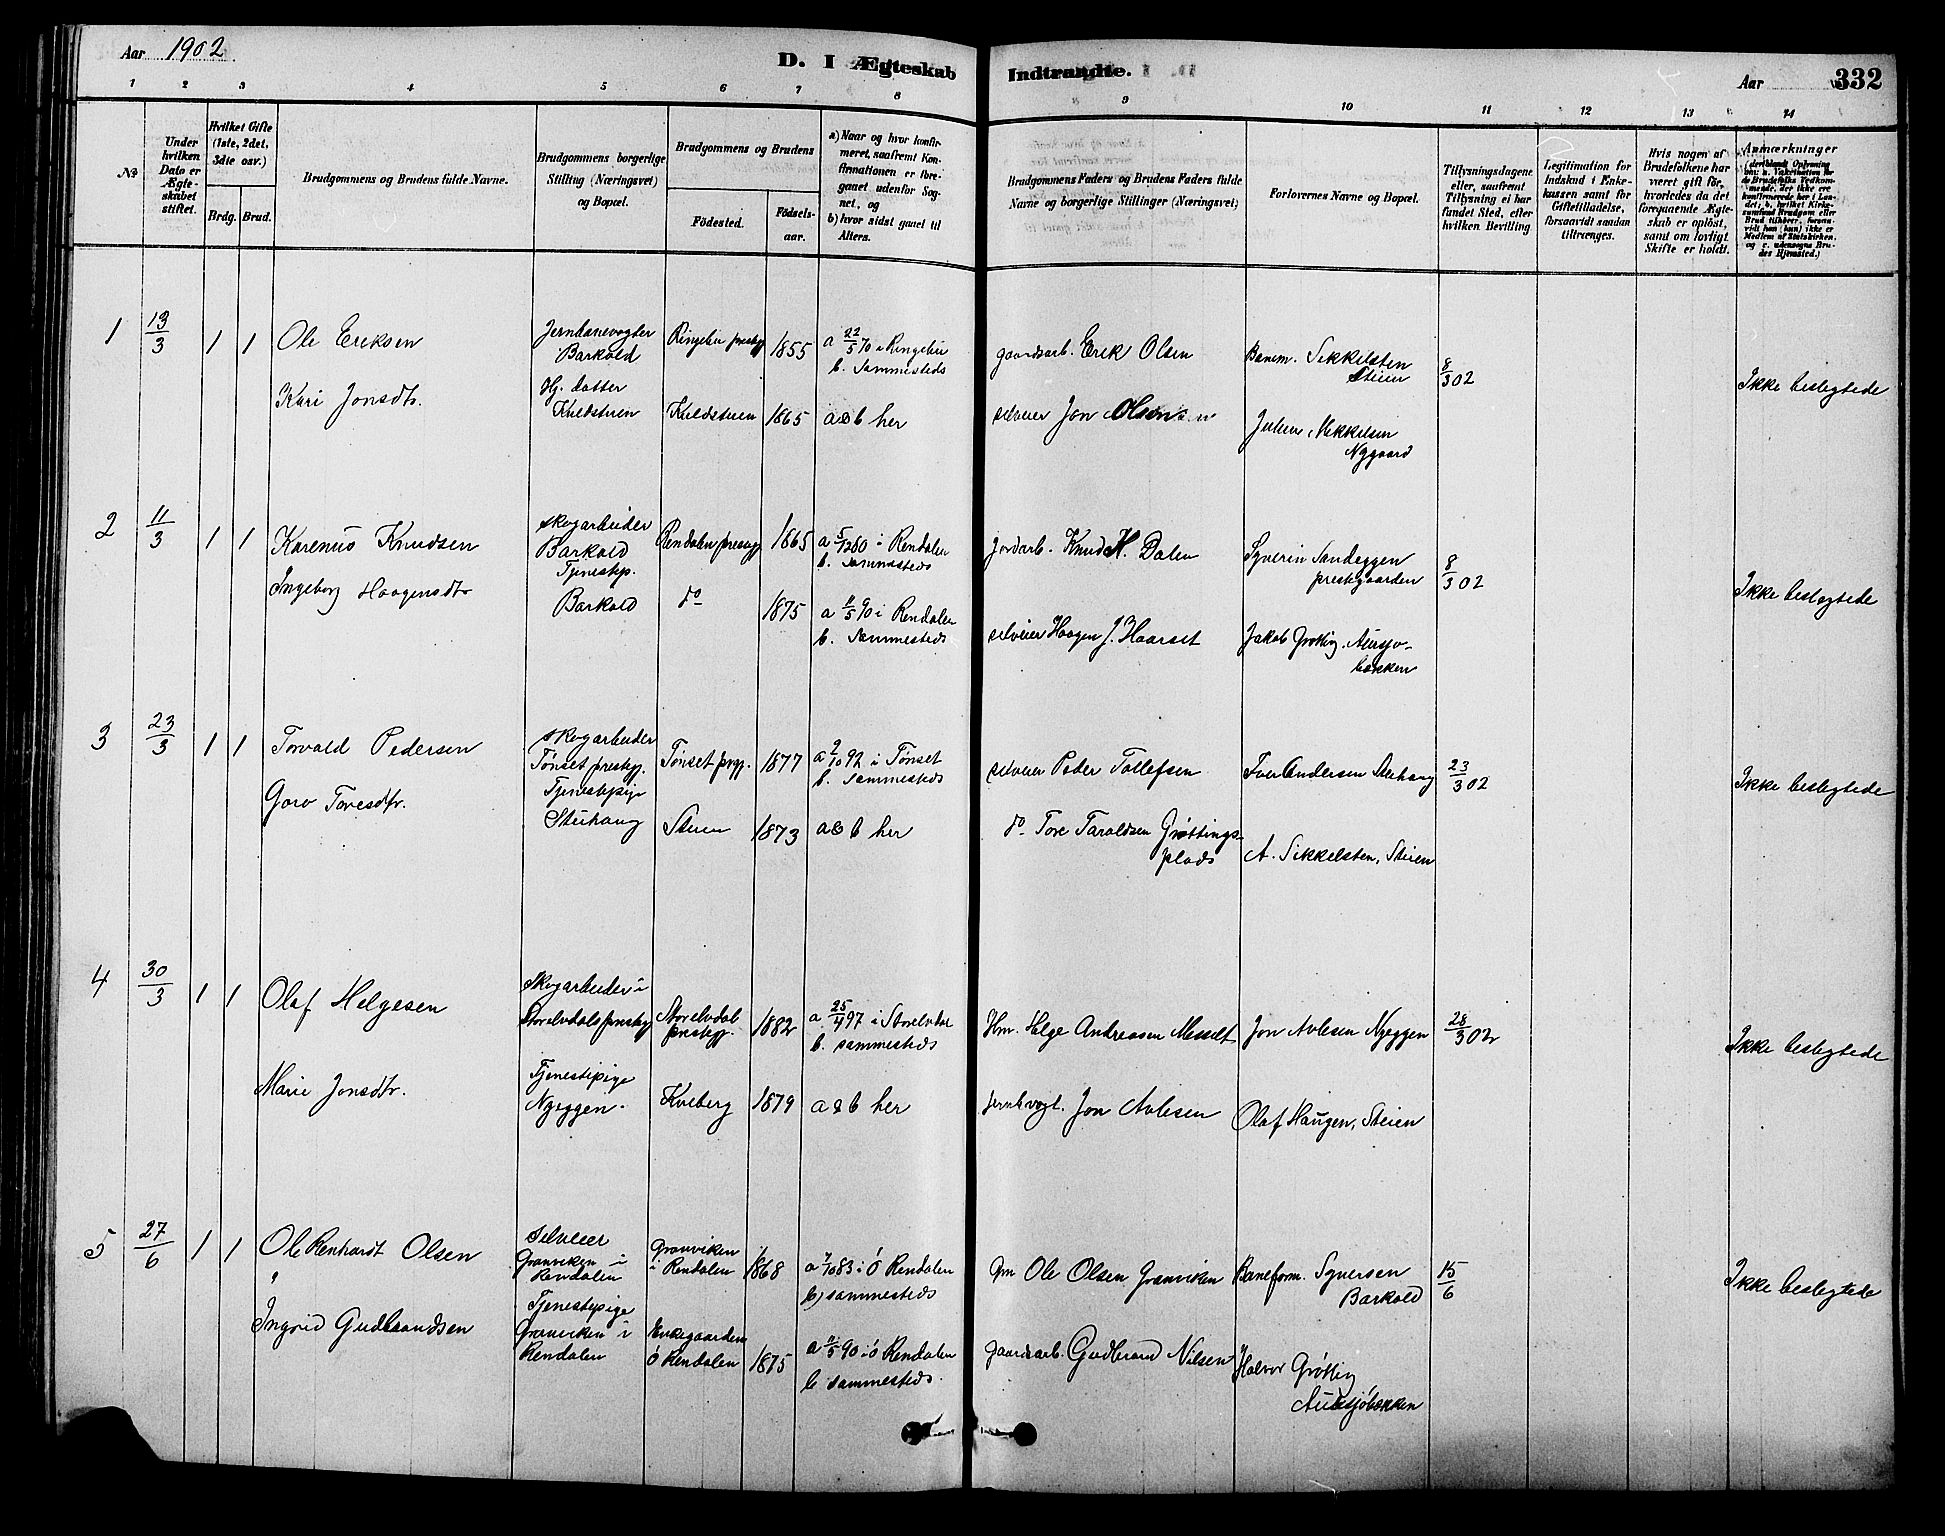 Aar 1902. D. I Ægteskab Indtraadte. Aar 332
1 2 3 4 5 6 7 8 9 10 11 12 13 14
№
Under hvilken Dato er Ægteskabet stiftet.
Hvilket Gifte (1ste, 2det, 3die osv.)
Brdg. Brud.
Brudgommens og Brudens fulde Navne.
Brudgommens borgerlige Stilling (Næringsvei) og Bopæl.
Brudgommens og Brudens
Födested. Födselsaar.
a) Naar og hvor konfirmeret, saafremt Konfirmationen er foregaaet udenfor Sognet, og
b) hvor sidst gaaet til Alters.
Brudgommens Faders og Brudens Faders fulde Navne og borgerlige Stillinger (Næringsvei)
Forlovernes Navne og Bopæl.
Tillysningsdagene eller, saafremt Tillysning ei har fundet Sted, efter hvilken Bevilling
Legitimation for Indskud i Enkekassen samt for Giftetilladelse, forsaavidt saadan tiltrænges.
Hvis nogen af Brudefolkene har været gift för, hvorledes da det foregaaende Ægteskab er oplöst, samt om lovligt Skifte er holdt.
Anmærkninger
1 13/3 1 1 Ole Eriksen
Jernbanevogter Barkald
Ringebu prestgj. 1855
a 22/5 70 i Ringebu
b. Sammesteds
gaardsarb. Erik Olsen
Banem. Sikkelsten Steien
8/3 02
Ikke beslegtede
Kari Jonsdtr.
Gj. datter
Kveldstuen
1865 a & b her
selveier Jon Olsen
Mikkelsen
Nygaard
2 11/3 1 1 Karenus Knudsen
skogarbeider
Barkald
Rendalen prestgj 1865
a 5/12 80 i Rendalen
b. Sammesteds
jordarb. Knud H. Dalen
Syverin Sandeggen
prestegaarden
8/3 02
Ikke beslegtede
Ingeborg Haagensdtr
Tjenestep.
Barkald
do 1875
a 11/5 90 i Rendalen
b. Sammesteds
selveier Haagen J. Haarset
Jakob Grøtting, Aursjobækken
3 23/3 1 1 Torvald Pedersen
skogarbeider
Tønset prestgj.
Tønset prgj. 1877
a 2/10 92 i Tønset
b. Sammesteds
selveier Peder Tollefsen
Iver Andersen Steihaug
23/3 02
Ikke beslegtede
Goro Toresdtr.
Tjenestepige
Steihaug
Steien 1873 a & b her
do Tore Taraldsen Grøttingsplads
A. Sikkelsten, Steien
4 30/3 1 1 Olaf Helgesen
Skogarbeider i
Storelvdals prestgj
Storelvdal prestgj. 1882
a. 25/4 97 i Storelvdal
b. sammesteds
Hm. Helge Andreassen Messelt
Jon Avlesen Nyeggen
28/3 02
Ikke beslegtede
Marie Jonsdtr.
Tjenestepige
Nyeggen.
Kveberg 1879 a & b her
jernbvogt. Jon Avlesen
Olaf Haugen, Steien
5 27/6 1 1 Ole Renhardt Olsen
Selveier
Granviken i
Rendalen
Granviken
i Rendalen 1868
a 7/10 83 i Ö Rendalen
b) sammesteds
Gm Ole Olsen Granviken
Baneform. Syversen
Barkald
15/6
Ikke beslegtede
Ingrid Gudbrandsen
Tjenestepige
Granviken i
Rendalen
Ö Rendalen 1875
a 11/5 90 i ö Rendalen
b sammesteds.
gaardsarb. Gudbrand Nilsen
Halvor Grötting
Aursjöbækken